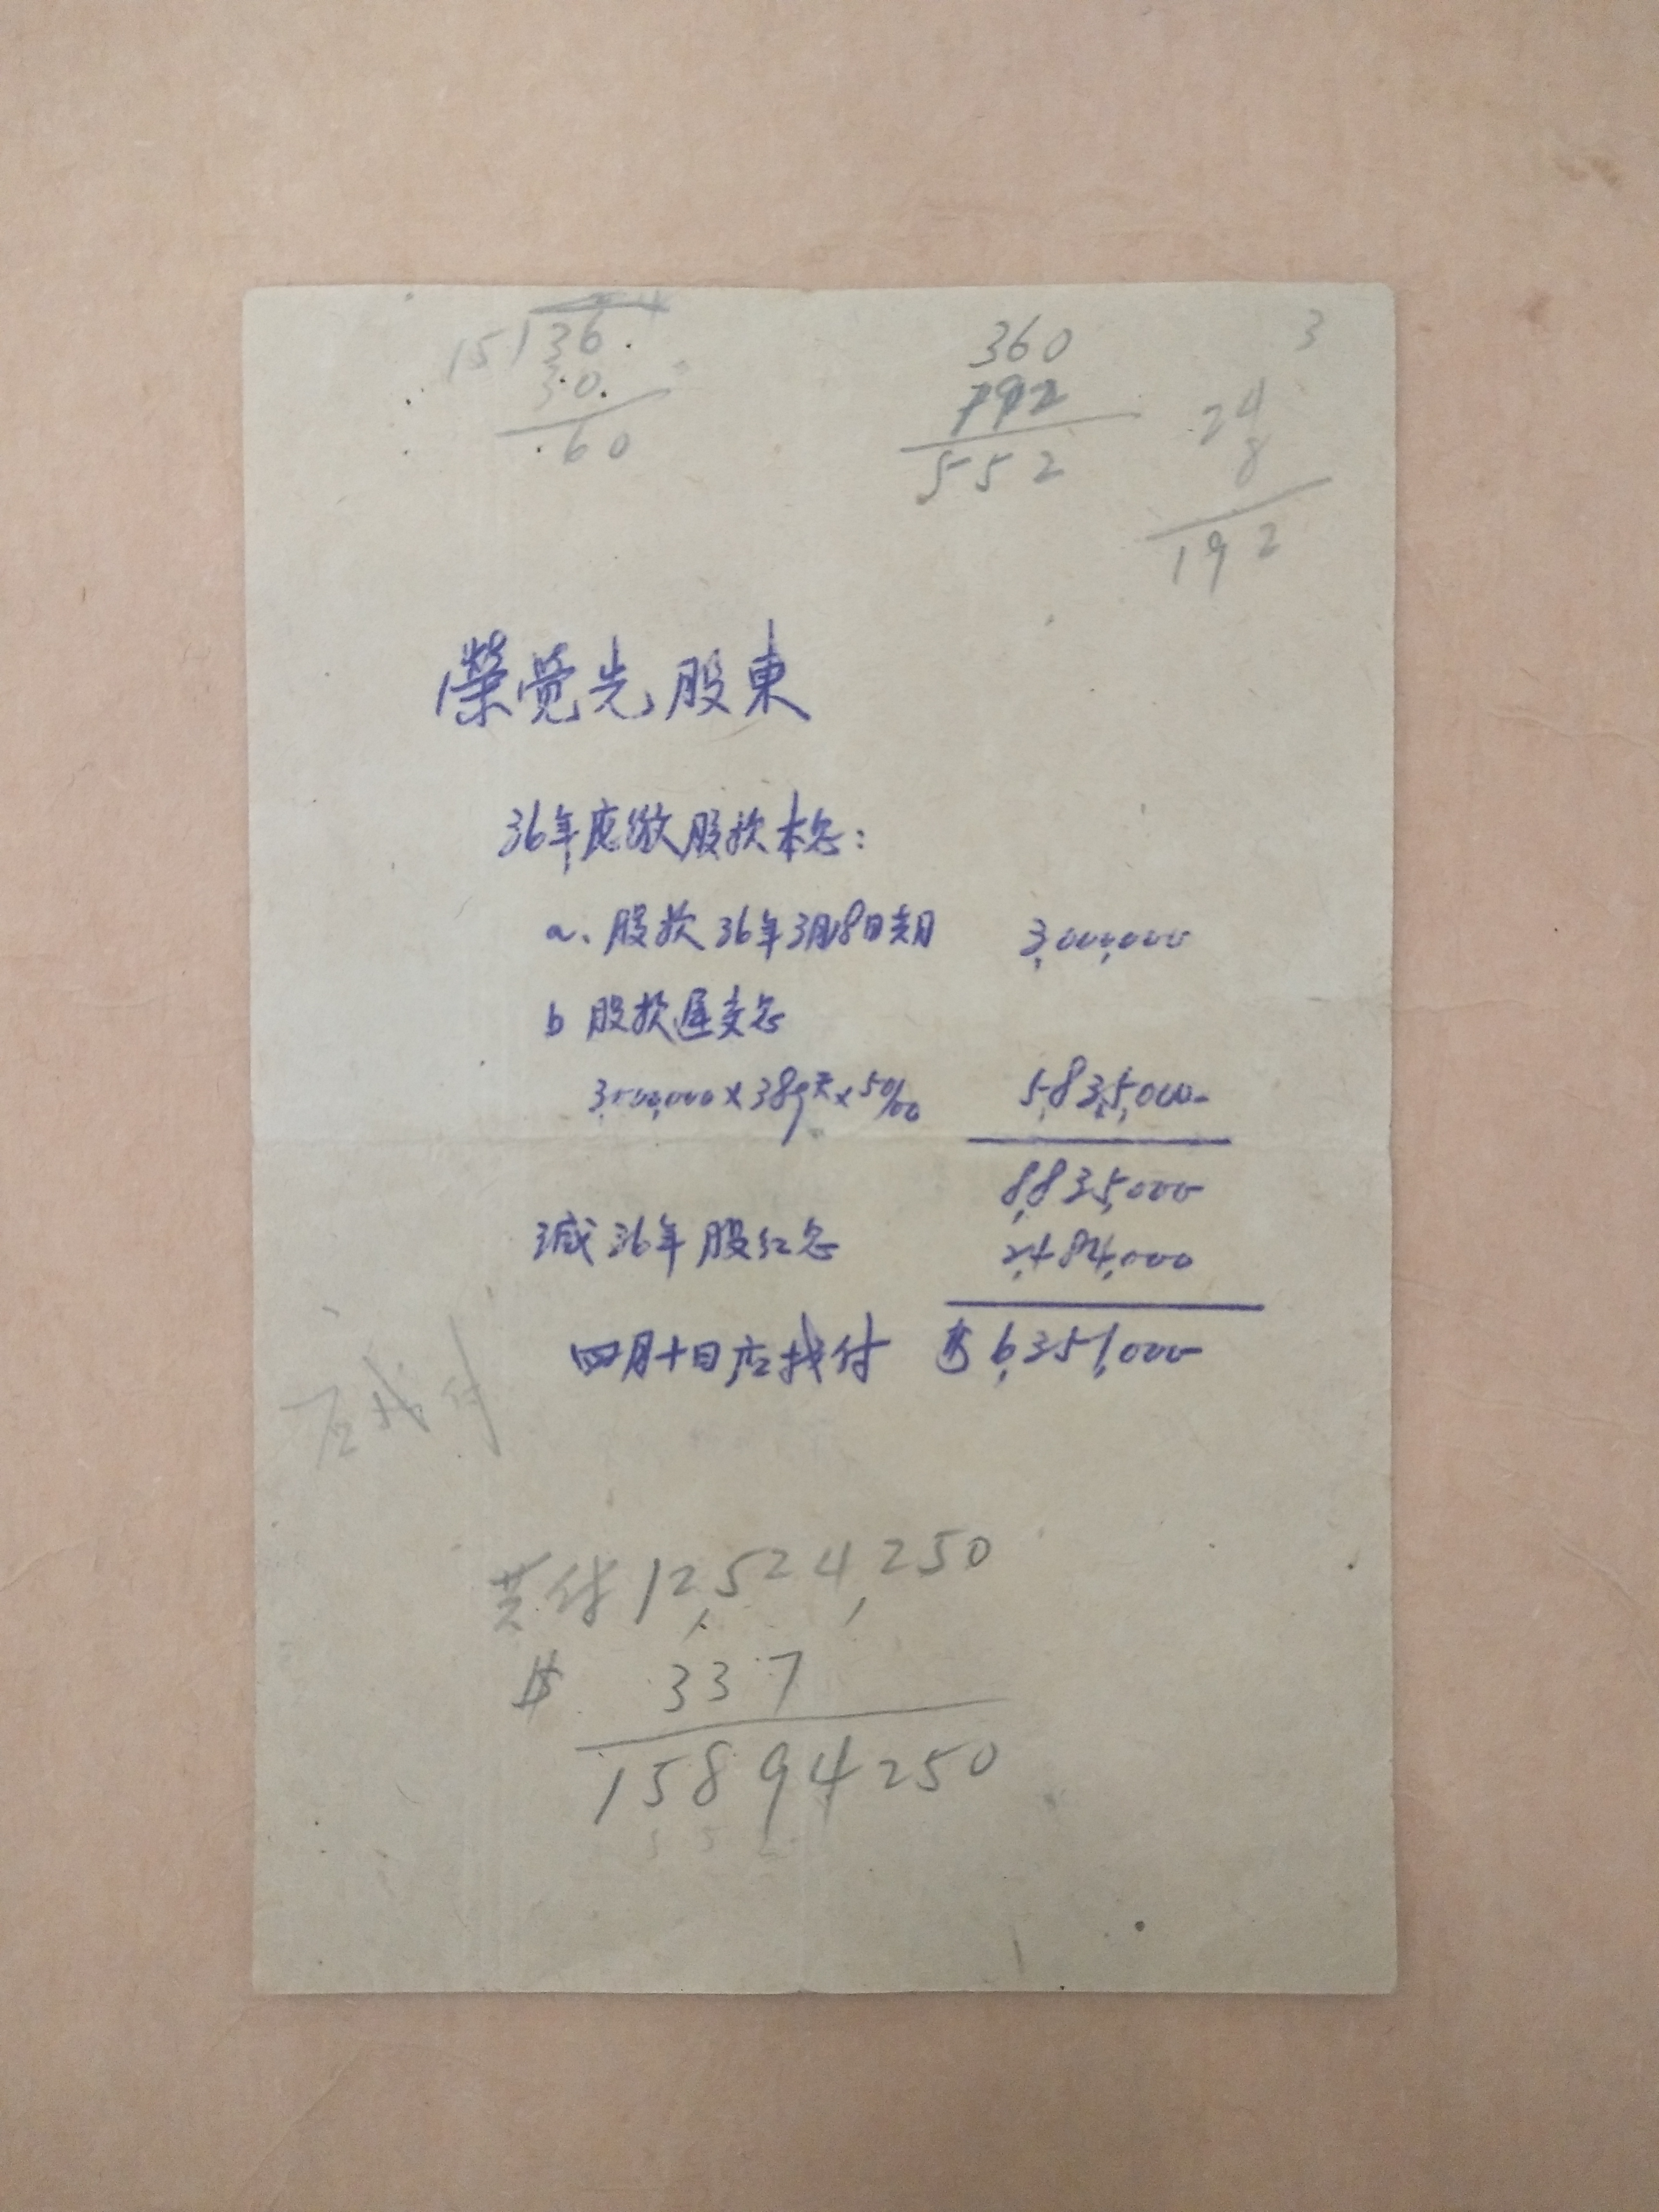 15 36
30
60
360
792
552
3
24
8
192
榮覺先股東
36年應繳股款本息:
a. 股款 36年3月18日期 3,000,000
b 股款遲交息
3,000,000 x 389天 x 5‰ 5,835,000-
8,835,000
減 36年股紅息 2,484,000
四月十日应找付 $ 6,351,000
应找付
共付 12,524,250
$ 337
15894250